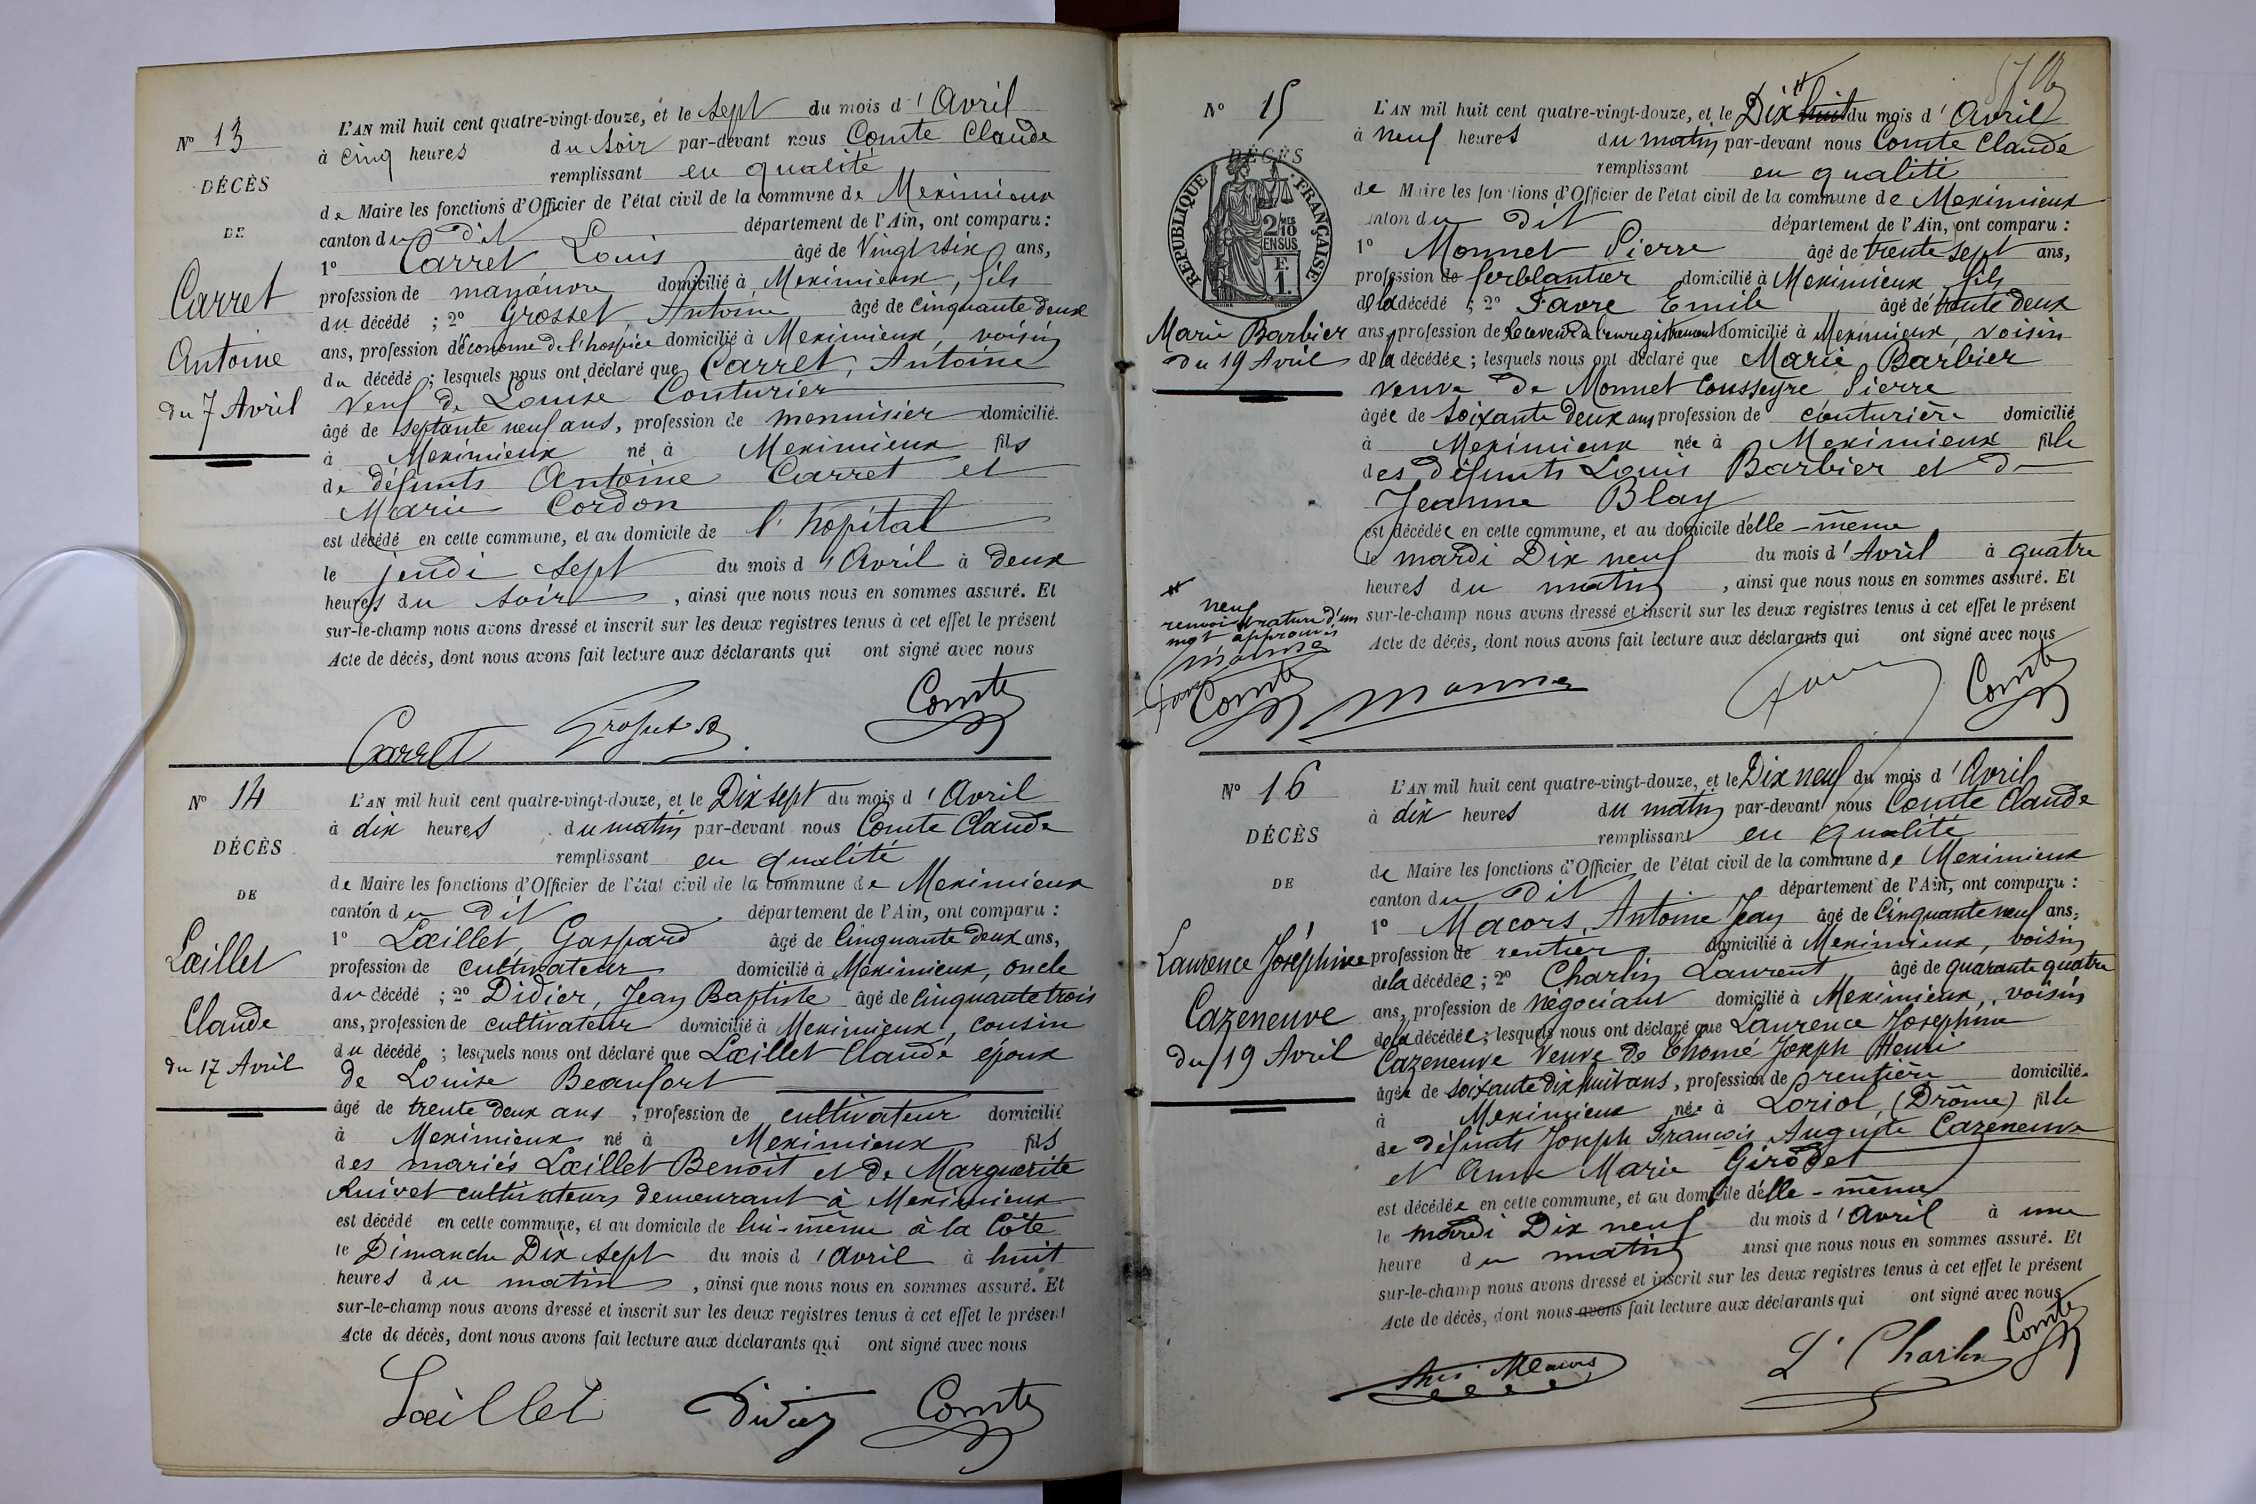 N° 13
DÉCÈS
DE
Carret
Antoine
du 7 Avril
L'AN mil huit cent quatre-vingt-douze, et le sept du mois d'Avril
à cinq heures du soir par-devant nous Comte Claude
remplissant en qualité
de Maire les fonctions d'Officier de l'état civil de la commune de Meximieux
canton du dit département de l'Ain, ont comparu :
1° Carret Louis âgé de Vingt six ans,
profession de manœuvre domicilié à Meximieux, fils
du décédé ; 2° Grosset Antoine âgé de cinquante deux
ans, profession d'économe de l'hospice domicilié à Meximieux, voisin
du décédé ; lesquels nous ont déclaré que Carret, Antoine
Veuf de Louise Couturier
âgé de septante neuf ans, profession de menuisier domicilié
à Meximieux né à Meximieux fils
de défunts Antoine Carret et
Marie Cordon
est décédé en cette commune, et au domicile de l'hopital
le jeudi sept du mois d'Avril à deux
heures du soir, ainsi que nous nous en sommes assuré. Et
sur-le-champ nous avons dressé et inscrit sur les deux registres tenus à cet effet le présent
Acte de décès, dont nous avons fait lecture aux déclarants qui ont signé avec nous
Carret Comte
N° 14
DÉCÈS
DE
Lœillet
Claude
du 17 Avril
L'AN mil huit cent quatre-vingt-douze, et le Dix sept du mois d'Avril
à dix heures du matin par-devant nous Comte Claude
remplissant en qualité
de Maire les fonctions d'Officier de l'état civil de la commune de Meximieux
canton du dit département de l'Ain, ont comparu :
1° Lœillet, Gaspard âgé de Cinquante deux ans,
profession de cultivateur domicilié à Meximieux, oncle
du décédé ; 2° Didier, Jean Baptiste âgé de Cinquante trois
ans, profession de cultivateur domicilié à Meximieux, cousin
du décédé ; lesquels nous ont déclaré que Lœillet Claude époux
de Louise Beaufort
âgé de trente deux ans, profession de cultivateur domicilié
à Meximieux né à Meximieux fils
des mariés Lœillet Benoit et de Marguerite
Ruivet cultivateurs demeurant à Meximieux
est décédé en cette commune, et au domicile de lui-même à la Côte
le Dimanche Dix sept du mois d'Avril à huit
heures du matin, ainsi que nous nous en sommes assuré. Et
sur-le-champ nous avons dressé et inscrit sur les deux registres tenus à cet effet le présent
Acte de décès, dont nous avons fait lecture aux déclarants qui ont signé avec nous
Lœillet Didier Comte
N° 15
DÉCÈS
RÉPUBLIQUE FRANÇAISE
2/10
EN SUS
F.
1.
Marie Barbier
du 19 Avril
L'AN mil huit cent quatre-vingt-douze, et le Dix huit du mois d'Avril
à neuf heures du matin par-devant nous Comte Claude
remplissant en qualité
de Maire les fonctions d'Officier de l'état civil de la commune de Meximieux
canton du dit département de l'Ain, ont comparu :
1° Monnet Pierre âgé de trente-sept ans,
profession de ferblantier domicilié à Meximieux fils
de la décédé ; 2° Favre Emile âgé de trente deux
ans, profession de Receveur de l'enregistrement domicilié à Meximieux, voisin
de la décédée ; lesquels nous ont déclaré que Marie Barbier
veuve de Monnet Cousseyre Pierre
âgée de soixante deux ans profession de couturière domicilié
à Meximieux née à Meximieux fille
des défunts Louis Barbier et de
Jeanne Blay
est décédée en cette commune, et au domicile d'elle-même
le mardi Dix neuf du mois d'Avril à quatre
heures du matin, ainsi que nous nous en sommes assuré. Et
sur-le-champ nous avons dressé et inscrit sur les deux registres tenus à cet effet le présent
Acte de décès, dont nous avons fait lecture aux déclarants qui ont signé avec nous
neuf
renvoi et rature d'un
mot approuvés
Comte Comte
N° 16
DÉCÈS
DE
Laurence Joséphine
Cazeneuve
du 19 Avril
L'AN mil huit cent quatre-vingt-douze, et le Dix neuf du mois d'Avril
à dix heures du matin par-devant nous Comte Claude
remplissant en qualité
de Maire les fonctions d'Officier de l'état civil de la commune de Meximieux
canton du dit département de l'Ain, ont comparu :
1° Macors, Antoine Jean âgé de Cinquante neuf ans,
profession de rentier domicilié à Meximieux, voisin
de la décédée ; 2° Charlin Laurent âgé de quarante quatre
ans, profession de négociant domicilié à Meximieux, voisin
de la décédée ; lesquels nous ont déclaré que Laurence Josephine
Cazeneuve Veuve de Thomé Joseph Henri
âgée de soixante dix huit ans, profession de rentière domicilié
à Meximieux née à Loriol, (Drôme) fille
de défunts Joseph François Auguste Cazeneuve
et Anne Marie Girodet
est décédée en cette commune, et au domicile d'elle-même
le mardi Dix neuf du mois d'Avril à une
heure du matin ainsi que nous nous en sommes assuré. Et
sur-le-champ nous avons dressé et inscrit sur les deux registres tenus à cet effet le présent
Acte de décès, dont nous avons fait lecture aux déclarants qui ont signé avec nous
L. Charlin Comte